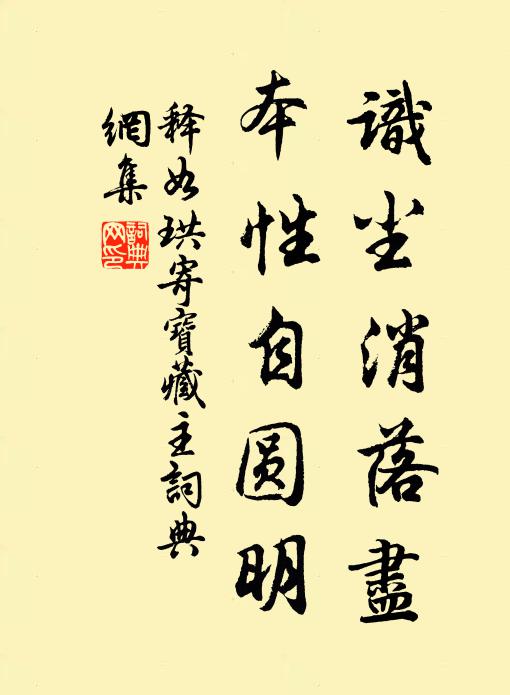 識尘消落盡
本性自圆明
释如珙寄寶藏主詞典
網集
詞典網印